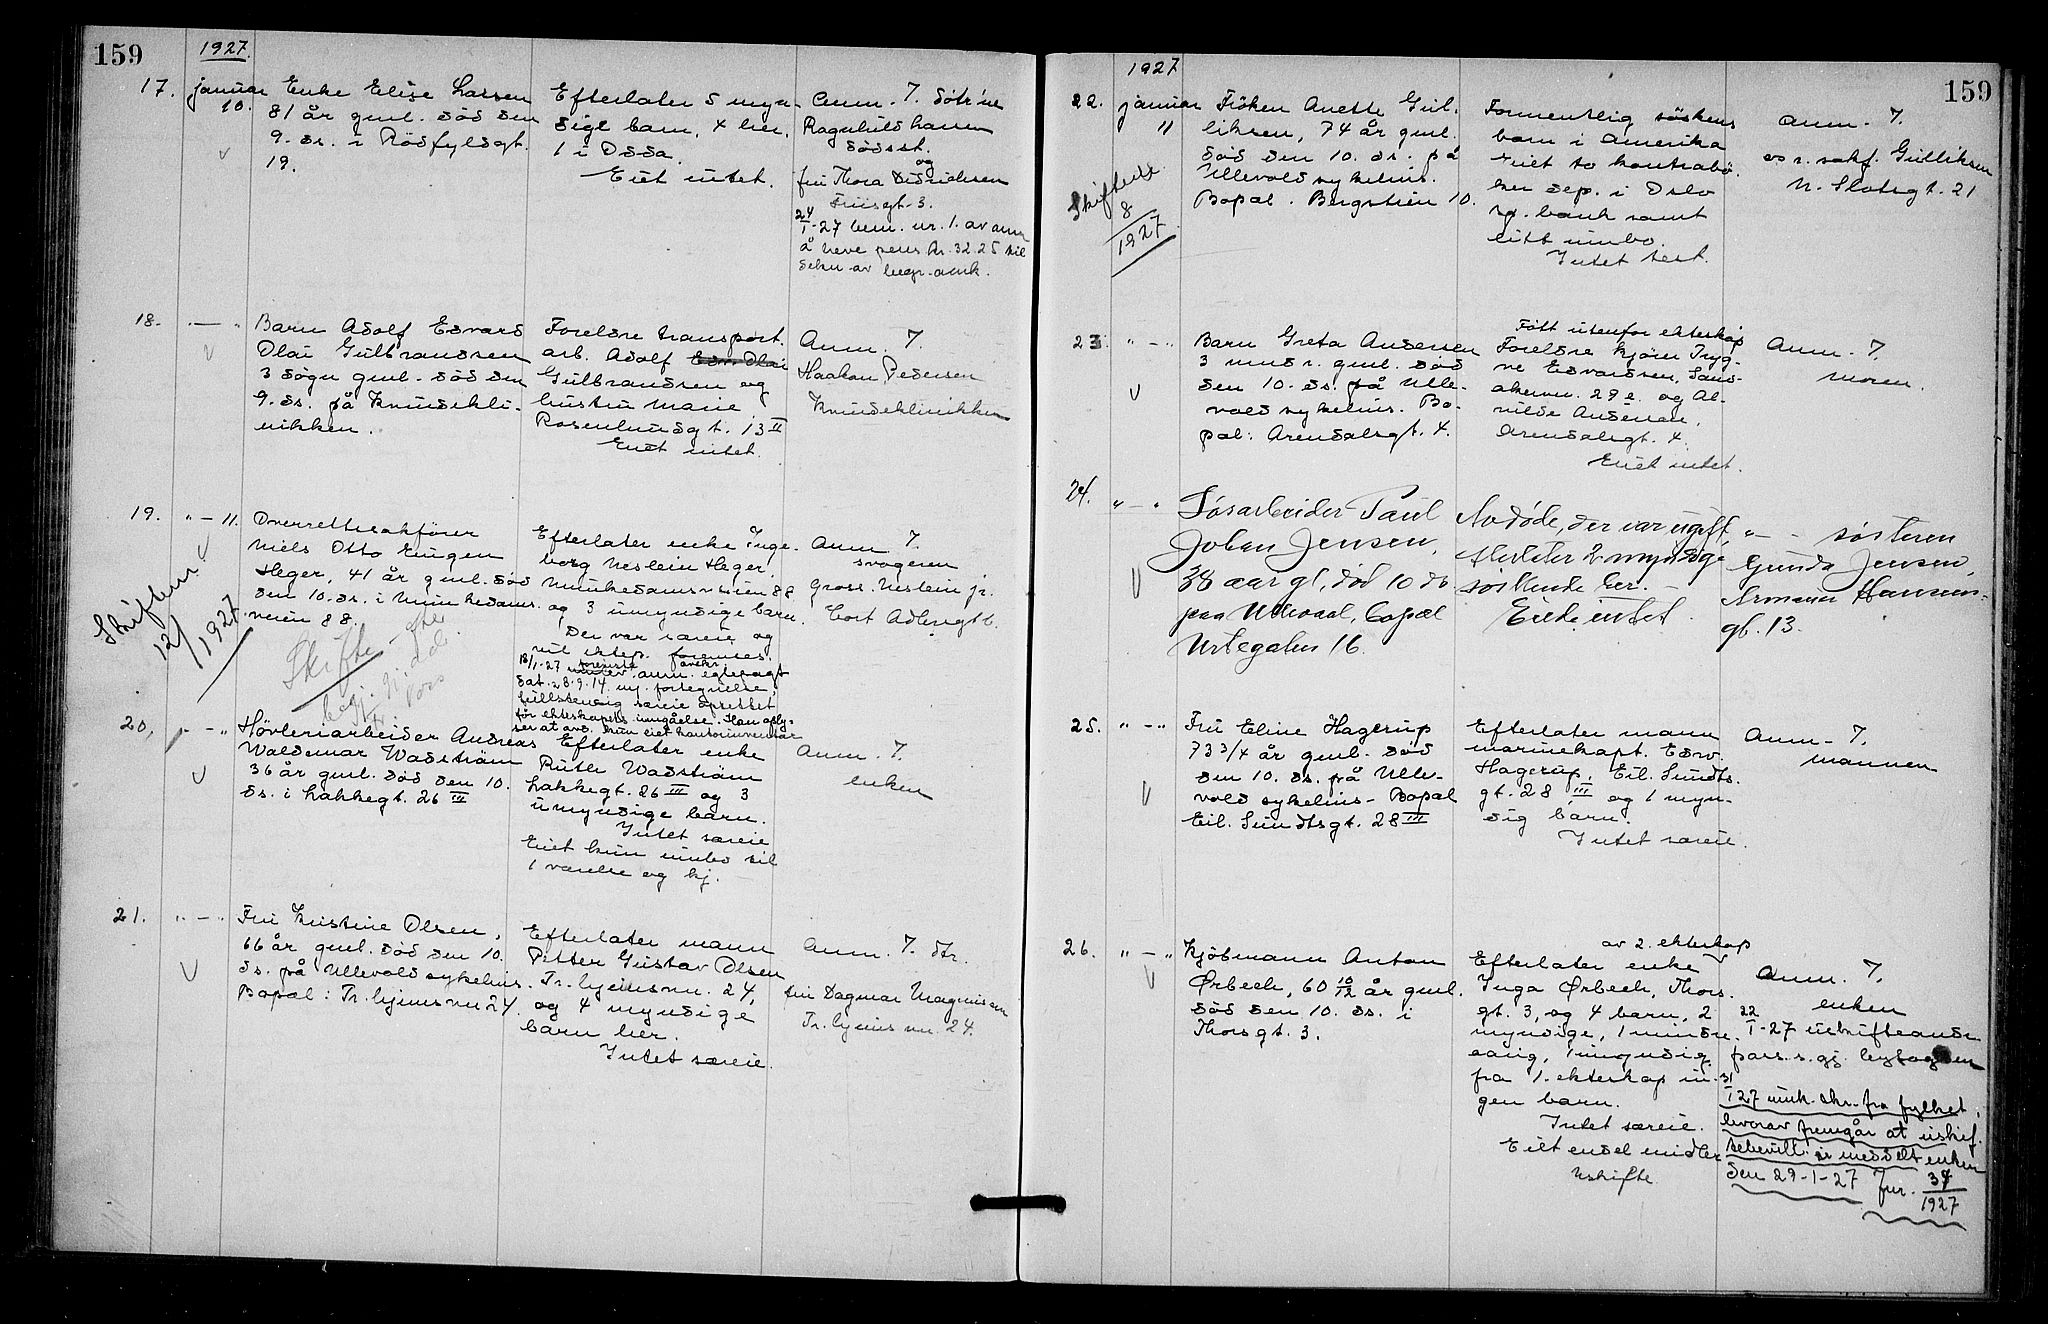 159
1927
17. januar 10. Enke Elise Larsen
81 år gml. död den
9. ds. i Rödfyldgt.
19.
Efterlater 5 myn-
dige barn, 4 her,
1 i Odda.
Eiet intet.
Anm. 7. døtrene
Ragnhild Larsen
dödsst.
og
fru Thora Didriksen
Friisgt. 3.
24/1-27 bem. nr. 1. av anm
å heve pens. kr. 32.25 til
dekn. av begr. omk.
18. " — " Barn Adolf Edvard
Olai Gulbrandsen
3 døgn gml. död den
9. ds. på Kvindekli-
nikken.
Foreldre transport.
arb. Adolf Edv. Olai
Gulbrandsen og
hustru Marie
Rosenlundgt. 13 II
Eiet intet.
Anm. 7.
Haakon Pedersen
Kvindeklinikken
19. " — 11. Overrettssakfører
Niels Otto Eugen
Heger, 41 år gml. död
den 10. ds. i Munkedams-
veien 88.
Skiftem.
12/1927
Skifte
Efterlater enke Inge-
borg Neslein Heger,
Munkedamsveien 88
og 3 umyndige barn.
Der var særeie og
vil ektep. forevises.
18/1-27 foreviste svogeren
anm. egtepagt
dat. 28.9.14 m. fortegnelse,
fullstendig særeie oprettet
før ekteskapets inngåelse. Han oply-
ser at avd. kun eiet kontorinventar
Anm. 7.
svogeren
Gross. Neslein jr.
Cort Adlersgt 6.
20. " — " Hövleriarbeider Andreas
Waldemar Wadström
36 år gml. död den 10.
ds. i Lakkegt. 26 III
Efterlater enke
Ruth Wadström
Lakkegt. 26 III og 3
umyndige barn.
Intet særeie
Eiet kun innbo til
1 værelse og kj.
Anm. 7.
enken
21. " — " Fru Kristine Olsen,
66 år gml. död den 10.
ds. på Ullevold sykehus.
Bopæl: Tr. hjemsvn 24.
Efterlater mann
Petter Gustav Olsen
Tr. hjemsvn. 24,
og 4 myndige
barn her.
Intet særeie.
Anm. 7. dtr.
fru Dagmar Magnussen
Tr. hjems vn. 24.
159
1927
22. januar 11 Fröken Anette Gul-
liksen, 74 år gml.
död den 10. ds. på
Ullevold sykehus.
Bopæl. Bergstien 10.
Skiftesl.
8
1927
Formentlig söskens
barn i Amerika
Eiet to kontrabö-
ker dep. i Oslo
sp. bank samt
litt innbo.
Intet test.
Anm. 7.
o.r. sakf. Gulliksen
N. Slotsgt. 21
23. " — " Barn Greta Andersen
3 mndr. gml. död
den 10. ds. på Ulle-
vold sykehus. Bo-
pæl: Arendalsgt. 4.
Født utenfor ekteskap
Foreldre kjörer Tryg-
ve Edvardsen, Sand-
akervn. 29 e. og Al-
vilde Andersen,
Arendalsgt. 4.
Eiet intet.
Anm. 7.
moren.
24. " — " Løsarbeider Paul
Johan Jensen,
38 aar gl, død 10 ds
paa Ullevaal, bopæl
Urtegaten 16.
Avdøde, der var ugift,
efterlater 2 myndige
søskende her.
Eiede intet.
" — " søsteren
Gunda Jensen,
Armauer Hansens-
gt. 13.
25. " — " Fru Eline Hagerup
73 3/4 år gml. död
den 10. ds. på Ulle-
vold sykehus — Bopæl
Eil. Sundtsgt. 28 III
Efterlater mann
marinekapt. Edv.
Hagerup, Eil. Sundts.
gt. 28 III, og 1 myn-
dig barn.
Intet særeie.
Anm. 7.
mannen
26. " — " Kjöbmann Anton
Ørbech, 60 10/12 år gml.
död den 10. ds. i
Thorsgt. 3.
av 2. ekteskap
Efterlater enke
Inga Ørbech, Thors.
gt. 3, og 4 barn, 2
myndige, 1 mindre-
årig, 1 umyndig
fra 1. ekteskap in-
gen barn.
Intet særeie.
Eiet endel midler
Uskifte
Anm. 7.
enken
22/1-27 uskifteandr.
31/1 27 mnk. skr. fra fylket,
hvorav fremgår at uskif.
tebevill. er meddelt enken
den 29-1-27 Jnr. 37/1927